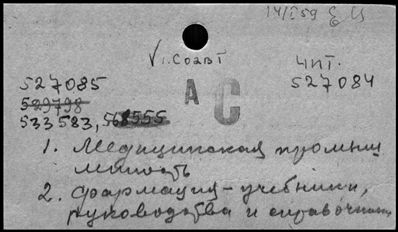 14/I 59
V 1. СОАВТ
527085
ЧИТ.
527084
529798
АС
533583, 568555
1. Медицинская промыш
ленность
2. Фармация - учебники,
руководства и справочники